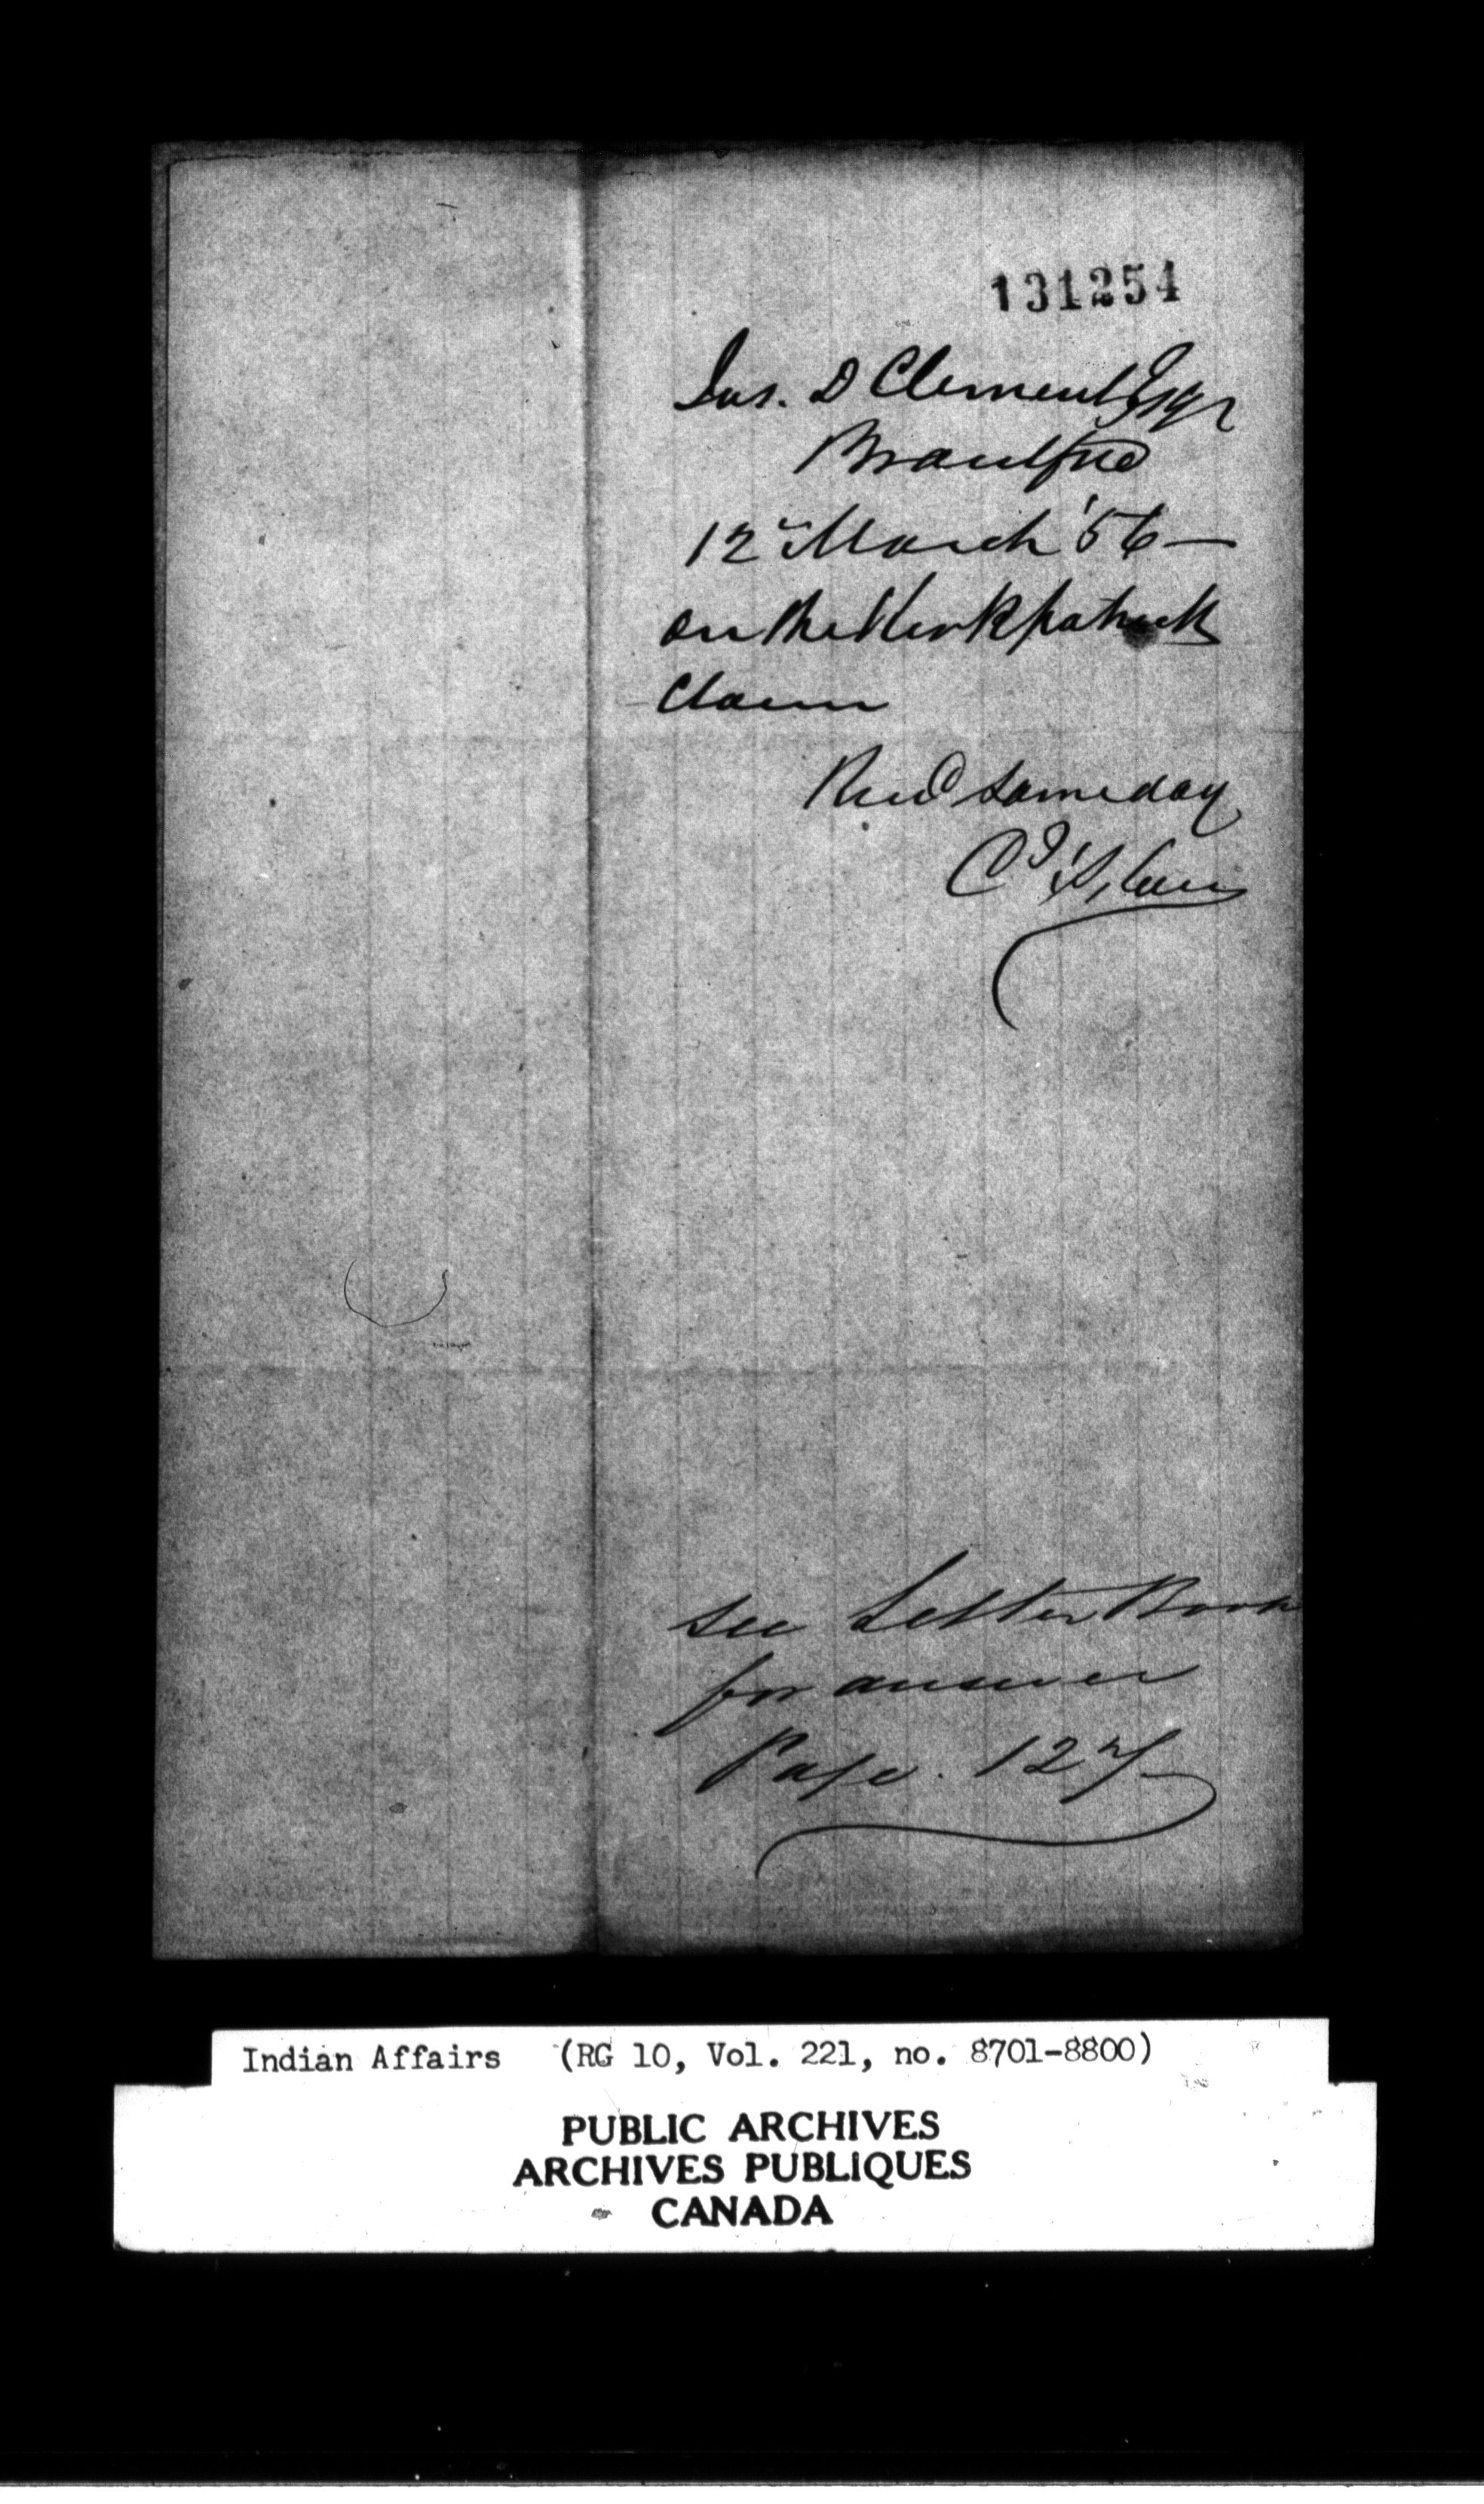 131254
Jas. D Clement Esqr
Brantford
12th March '56 —
on the Kirkpatrick
Claim
Recd same day
see Letter Book
for answer
Page. 127
Indian Affairs (RG 10, Vol. 221, no. 8701-8800)
PUBLIC ARCHIVES
ARCHIVES PUBLIQUES
CANADA